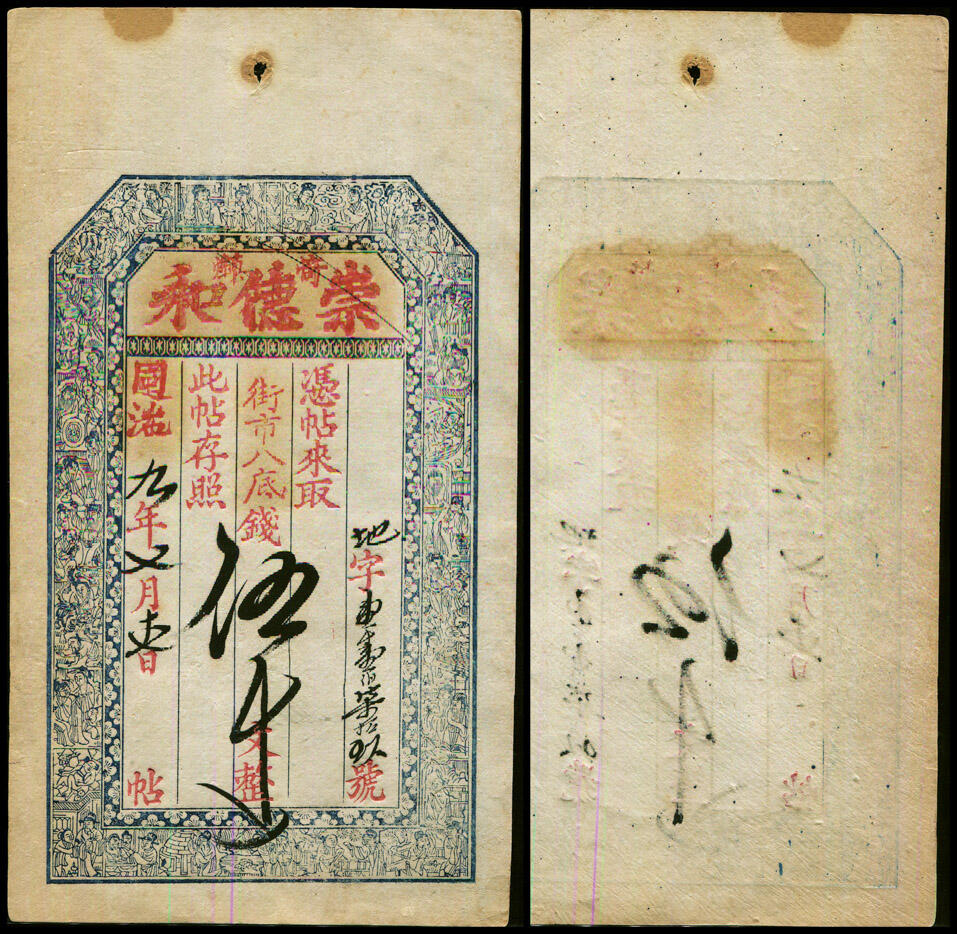 崇德和
地字柒拾號
憑帖來取
街市八底錢伍千文整
此帖存照
同治九年月日帖